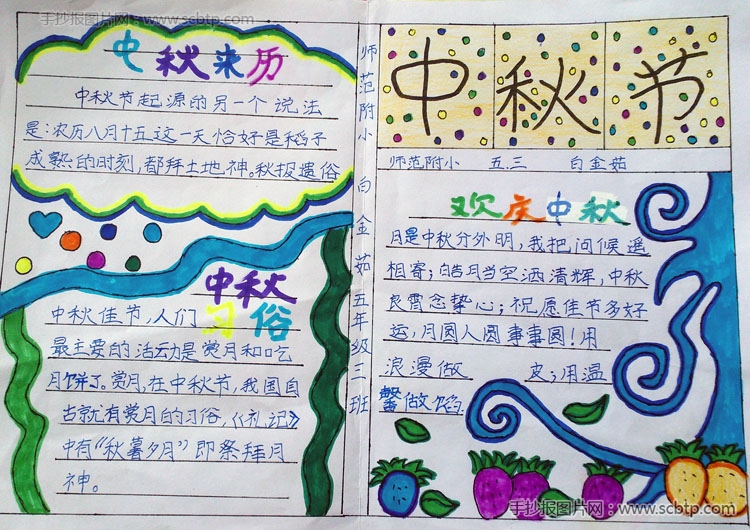 手抄报图片网:www.scbtp.com
中秋来历
中秋节起源的另一个说法
是:农历八月十五这一天恰好是稻子
成熟的时刻,都拜土地神。秋报遗俗
中秋
习俗
中秋佳节,人们
最主要的活动是赏月和吃
月饼了。赏月,在中秋节,我国自
古就有赏月的习俗,《礼记》
中有“秋暮夕月”即祭拜月
神。
师范附小 白金茹 五年级三班
中秋节
师范附小 五.三 白金茹
欢庆中秋
月是中秋分外明,我把问候遥
相寄;皓月当空洒清辉,中秋
良宵念挚心;祝愿佳节多好
运,月圆人圆事事圆!用
浪漫做 皮;用温
馨做馅
手抄报图片网:www.scbtp.com